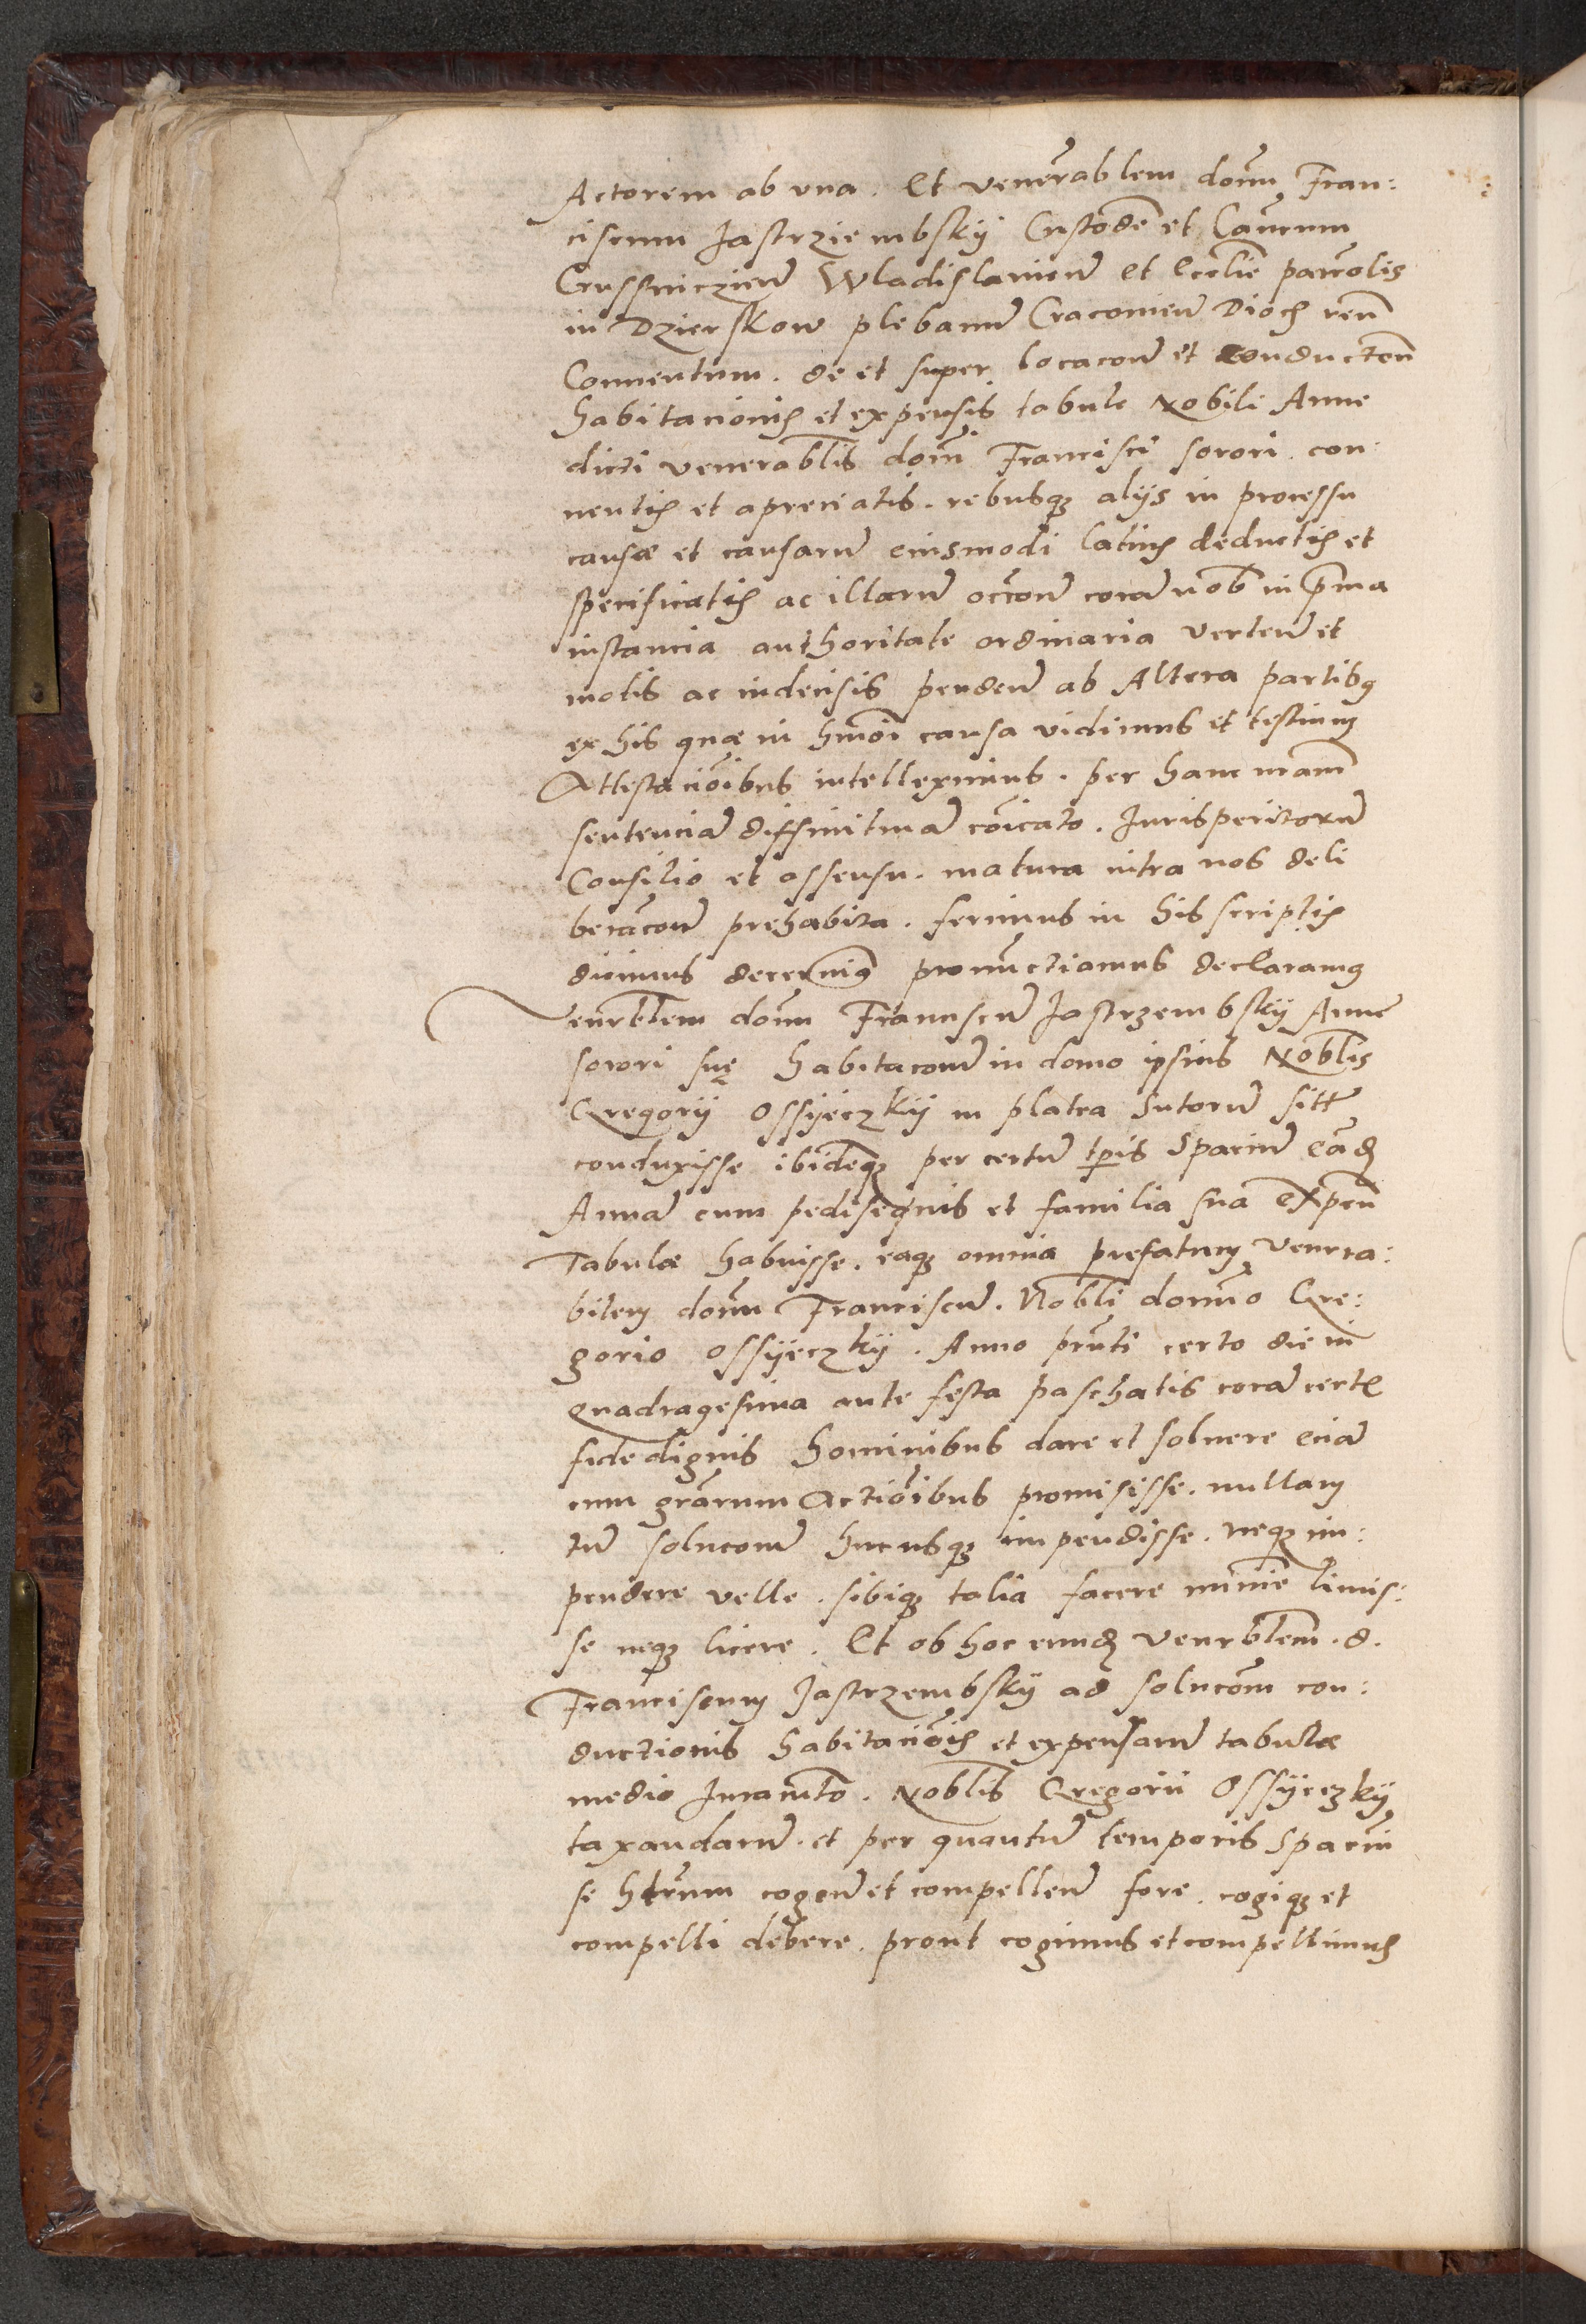 Actorem ab vna . Et venerablem domm Fran:
ciscum Jastrziembskÿ Custodē et Canrum
Crusswiczien̄ Wladislauien̄ et Ecclie parrolis
in Dzierskow plebanū Cracouien̄ Dioc̄ reū
Conuentum . de et super locacoē et conducten
habitacionis et expensis tabule Nobili Anne
dicti venerablis domi Francisci sorori . con:
uentis et apreciatis . rebusq; alÿs in processu
causæ et causarū eiusmodi latius deductis et
specificatis ac illarū occone corā nob in prma
instancia authoritate ordinaria verten̄ et
motis ac indecisis penden̄ ab Altera partibus
ex his quæ in hmoi causa vidimus et testium
Attestacioibus intelleximus . per hanc nram
sentenciā diffinitiuā coicato . Jurisperitorū
Consilio et assensu . matura intra nos deli
beracoē prehabita . ferimus in his scriptis
dicimus decernimus pronunctiamus declaramus
venrblem domm Franciscū Jastrzembskÿ Anne
sorori suę habitacoem in domo ipsius Noblis
Gregorÿ Ossÿeczkÿ in platea Sutorū sitt
conduxisse ibidemq; per certū tpis Spaciū eād
Annā cum pedisequis et familia sua expen
Tabulæ habuisse . eaq; omnia prefatum venera:
bilem domm Franciscū . Nobli domino Gre:
gorio Ossÿeczkÿ . Anno prnti certo die in
quadragesima ante festa paschatis corā certis
fide dignis hominibus dare et soluere eciā
cum grarum actioibus promisisse . nullam
tn̄ solucoem hucusq; impendisse . neq; im:
pendere velle . sibiq; talia facere minime licuis:
se neq; licere . Et ob hoc eund venrblem . d .
Franciscum Jastrzembskÿ ad solucom con:
ductionis habitaciois et expensarū tabulæ
medio Juramto . Noblis Gregorii Ossÿeczkÿ
taxandarū . et per quantū temporis Spaciu
se cogen̄ et compellen̄ fore . cogiq; et
compelli debere . prout cogimus et compellimus